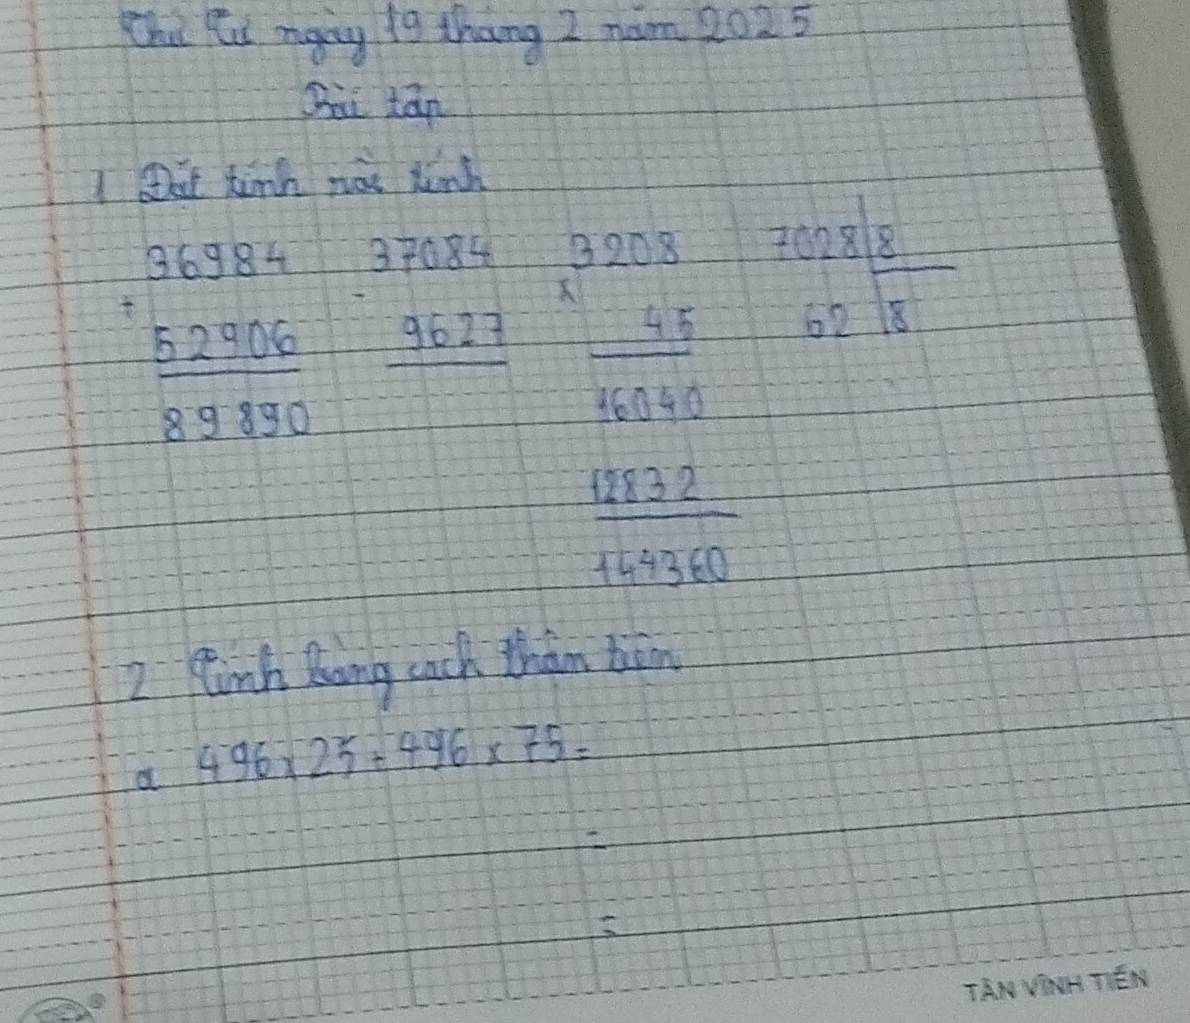 Thứ Tư ngày 19 tháng 2 năm 2025
Bài tập
1 Đặt tính rồi tính
36984 37084 3208 7028 8
+ - x
52906 9627 45 62 8
89890 16040
12832
144360
2 Tính bằng cách thận tiện
a 496 x 25 + 496 x 75 =
=
=
TÂN VĨNH TIẾN